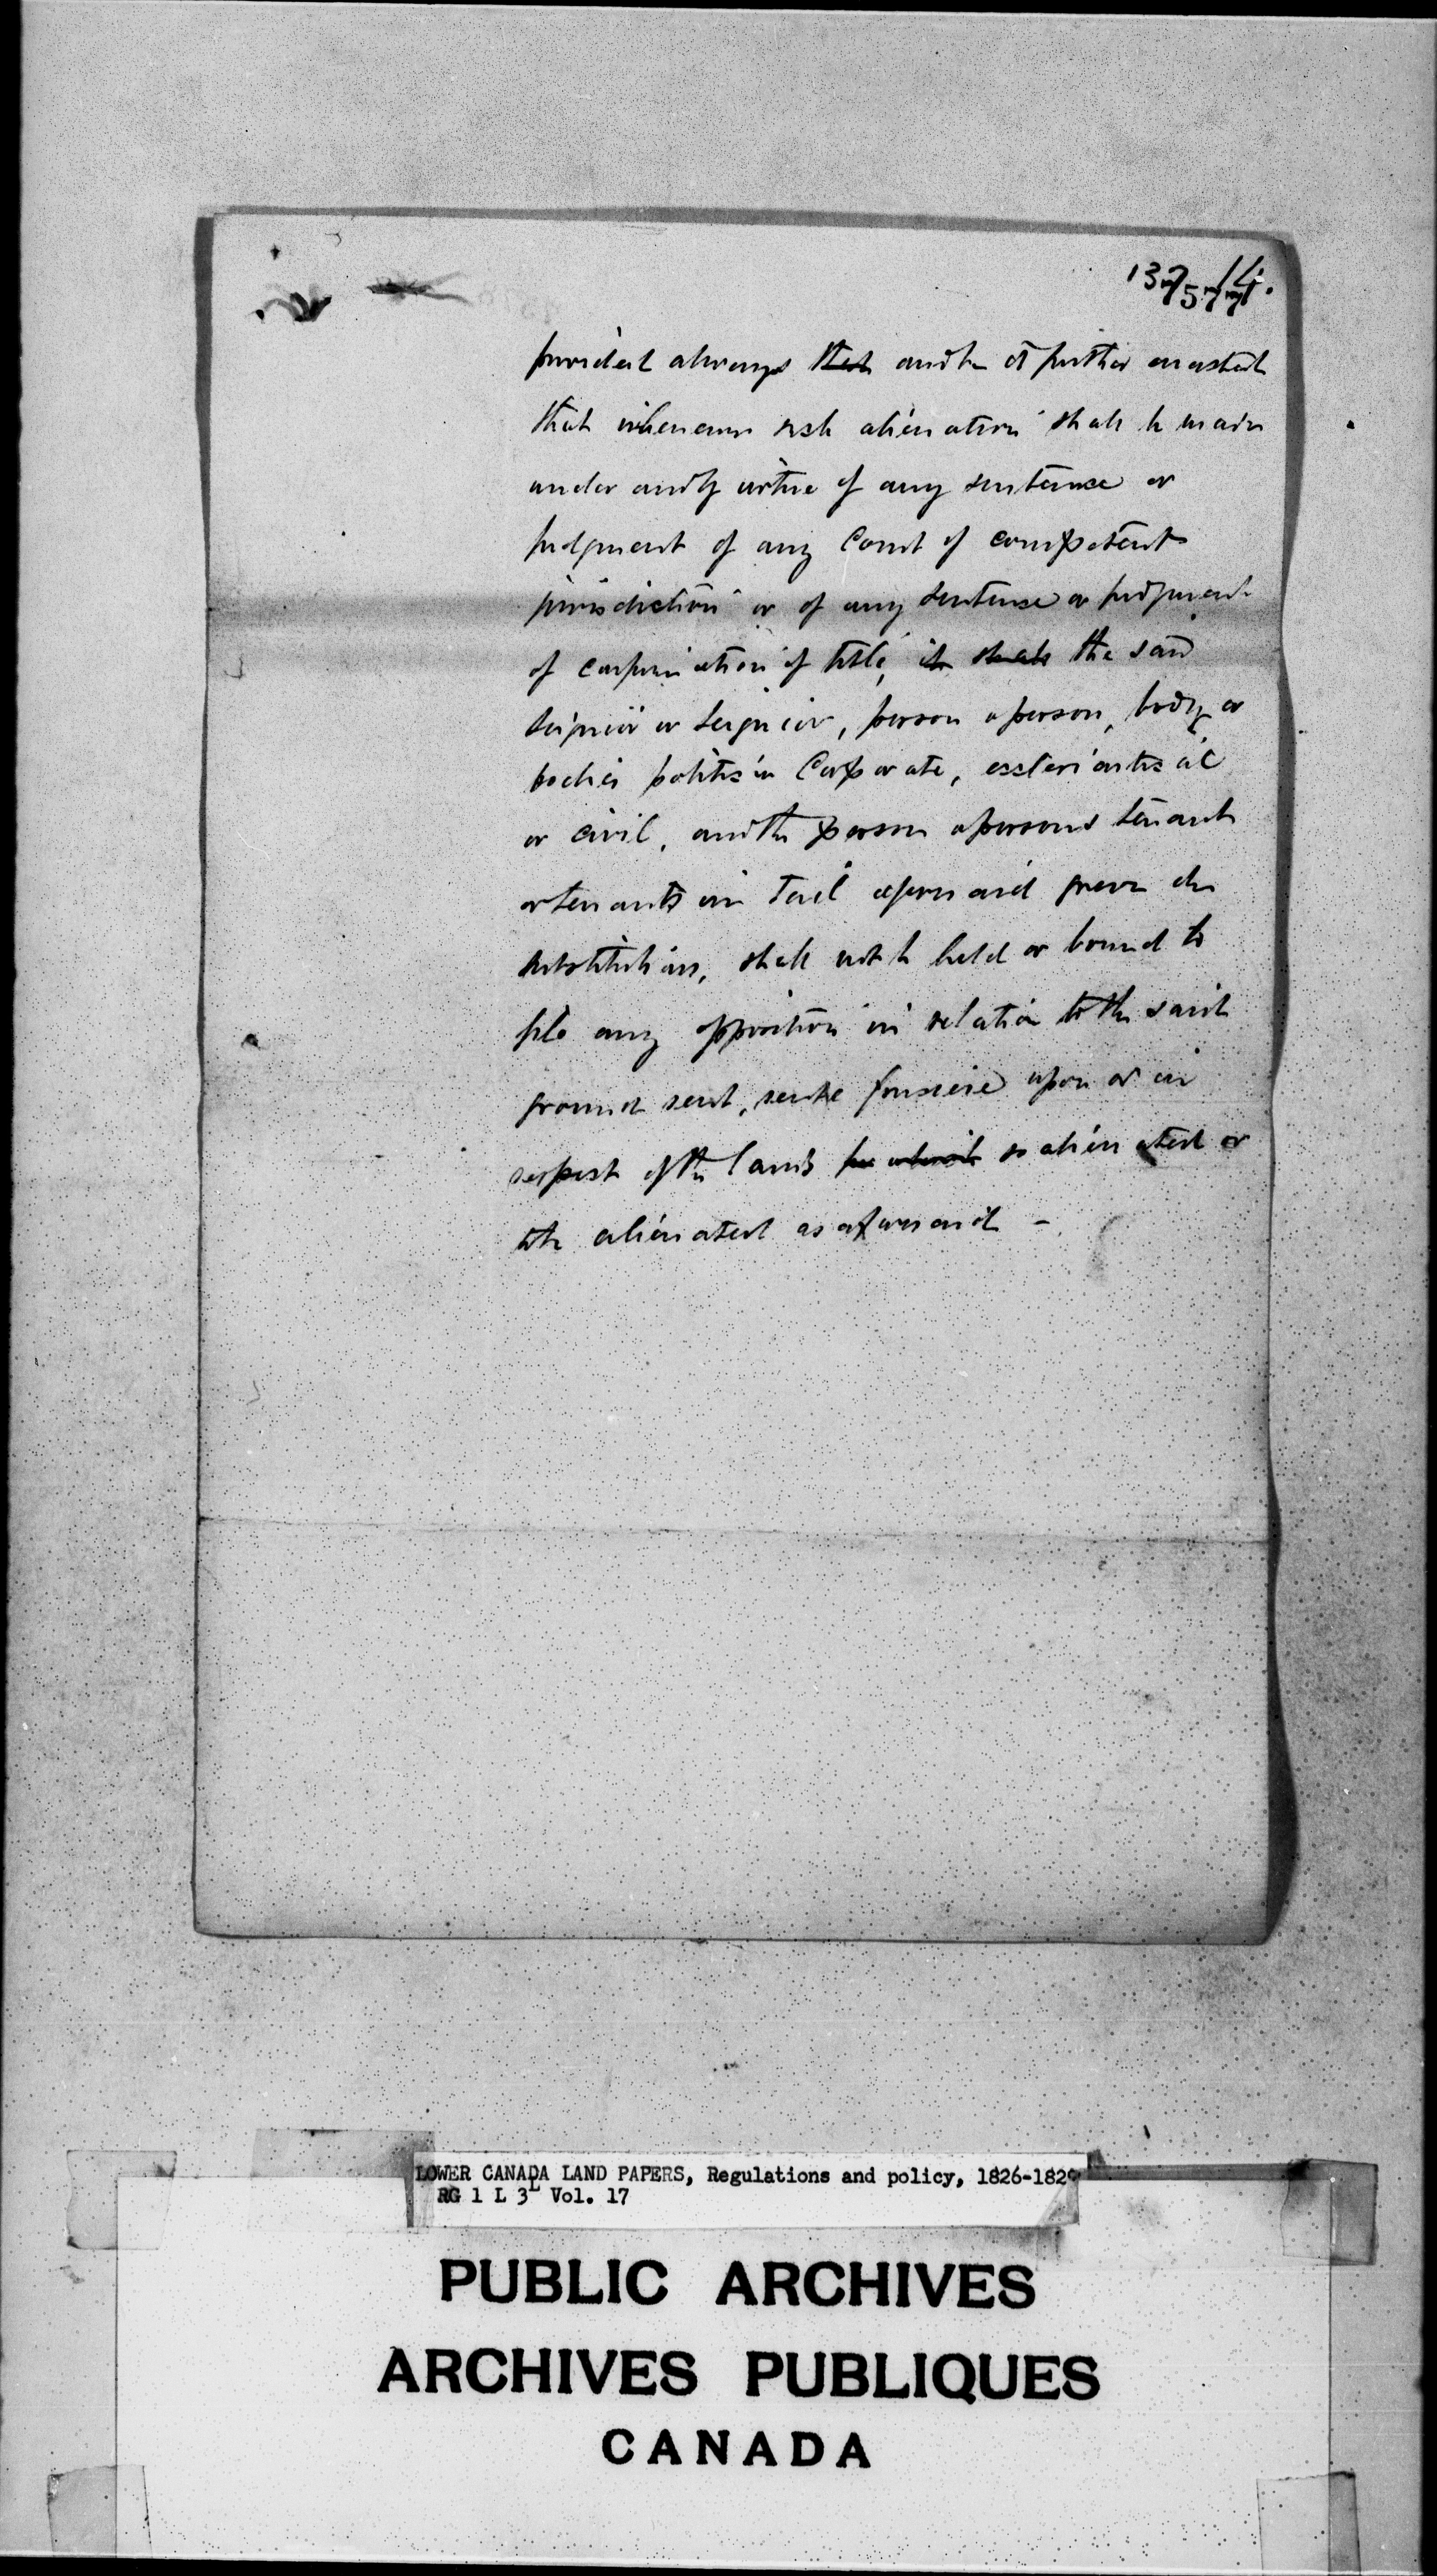 provided always that and be it further enacted
that whenever such alienation shall be made
under and by virtue of any sentence or
judgment of any Court of competent
jurisdiction or of any sentence or judgment
of confirmation of title, it shall the said
Seignior or Seignior, person or person, body or
bodies politic or Corporate, ecclesiastical
or civil, and the person or persons tenant
or tenants in Tail aforesaid grevé de
substitution, shall not be held or bound to
file any opposition in relation to the said
ground rent, rente foncière upon or in
respect of the lands so alienated or
to be alienated as aforesaid -
LOWER CANADA LAND PAPERS, Regulations and policy, 1826-1829
RG 1 L 3L Vol. 17
PUBLIC ARCHIVES
ARCHIVES PUBLIQUES
CANADA